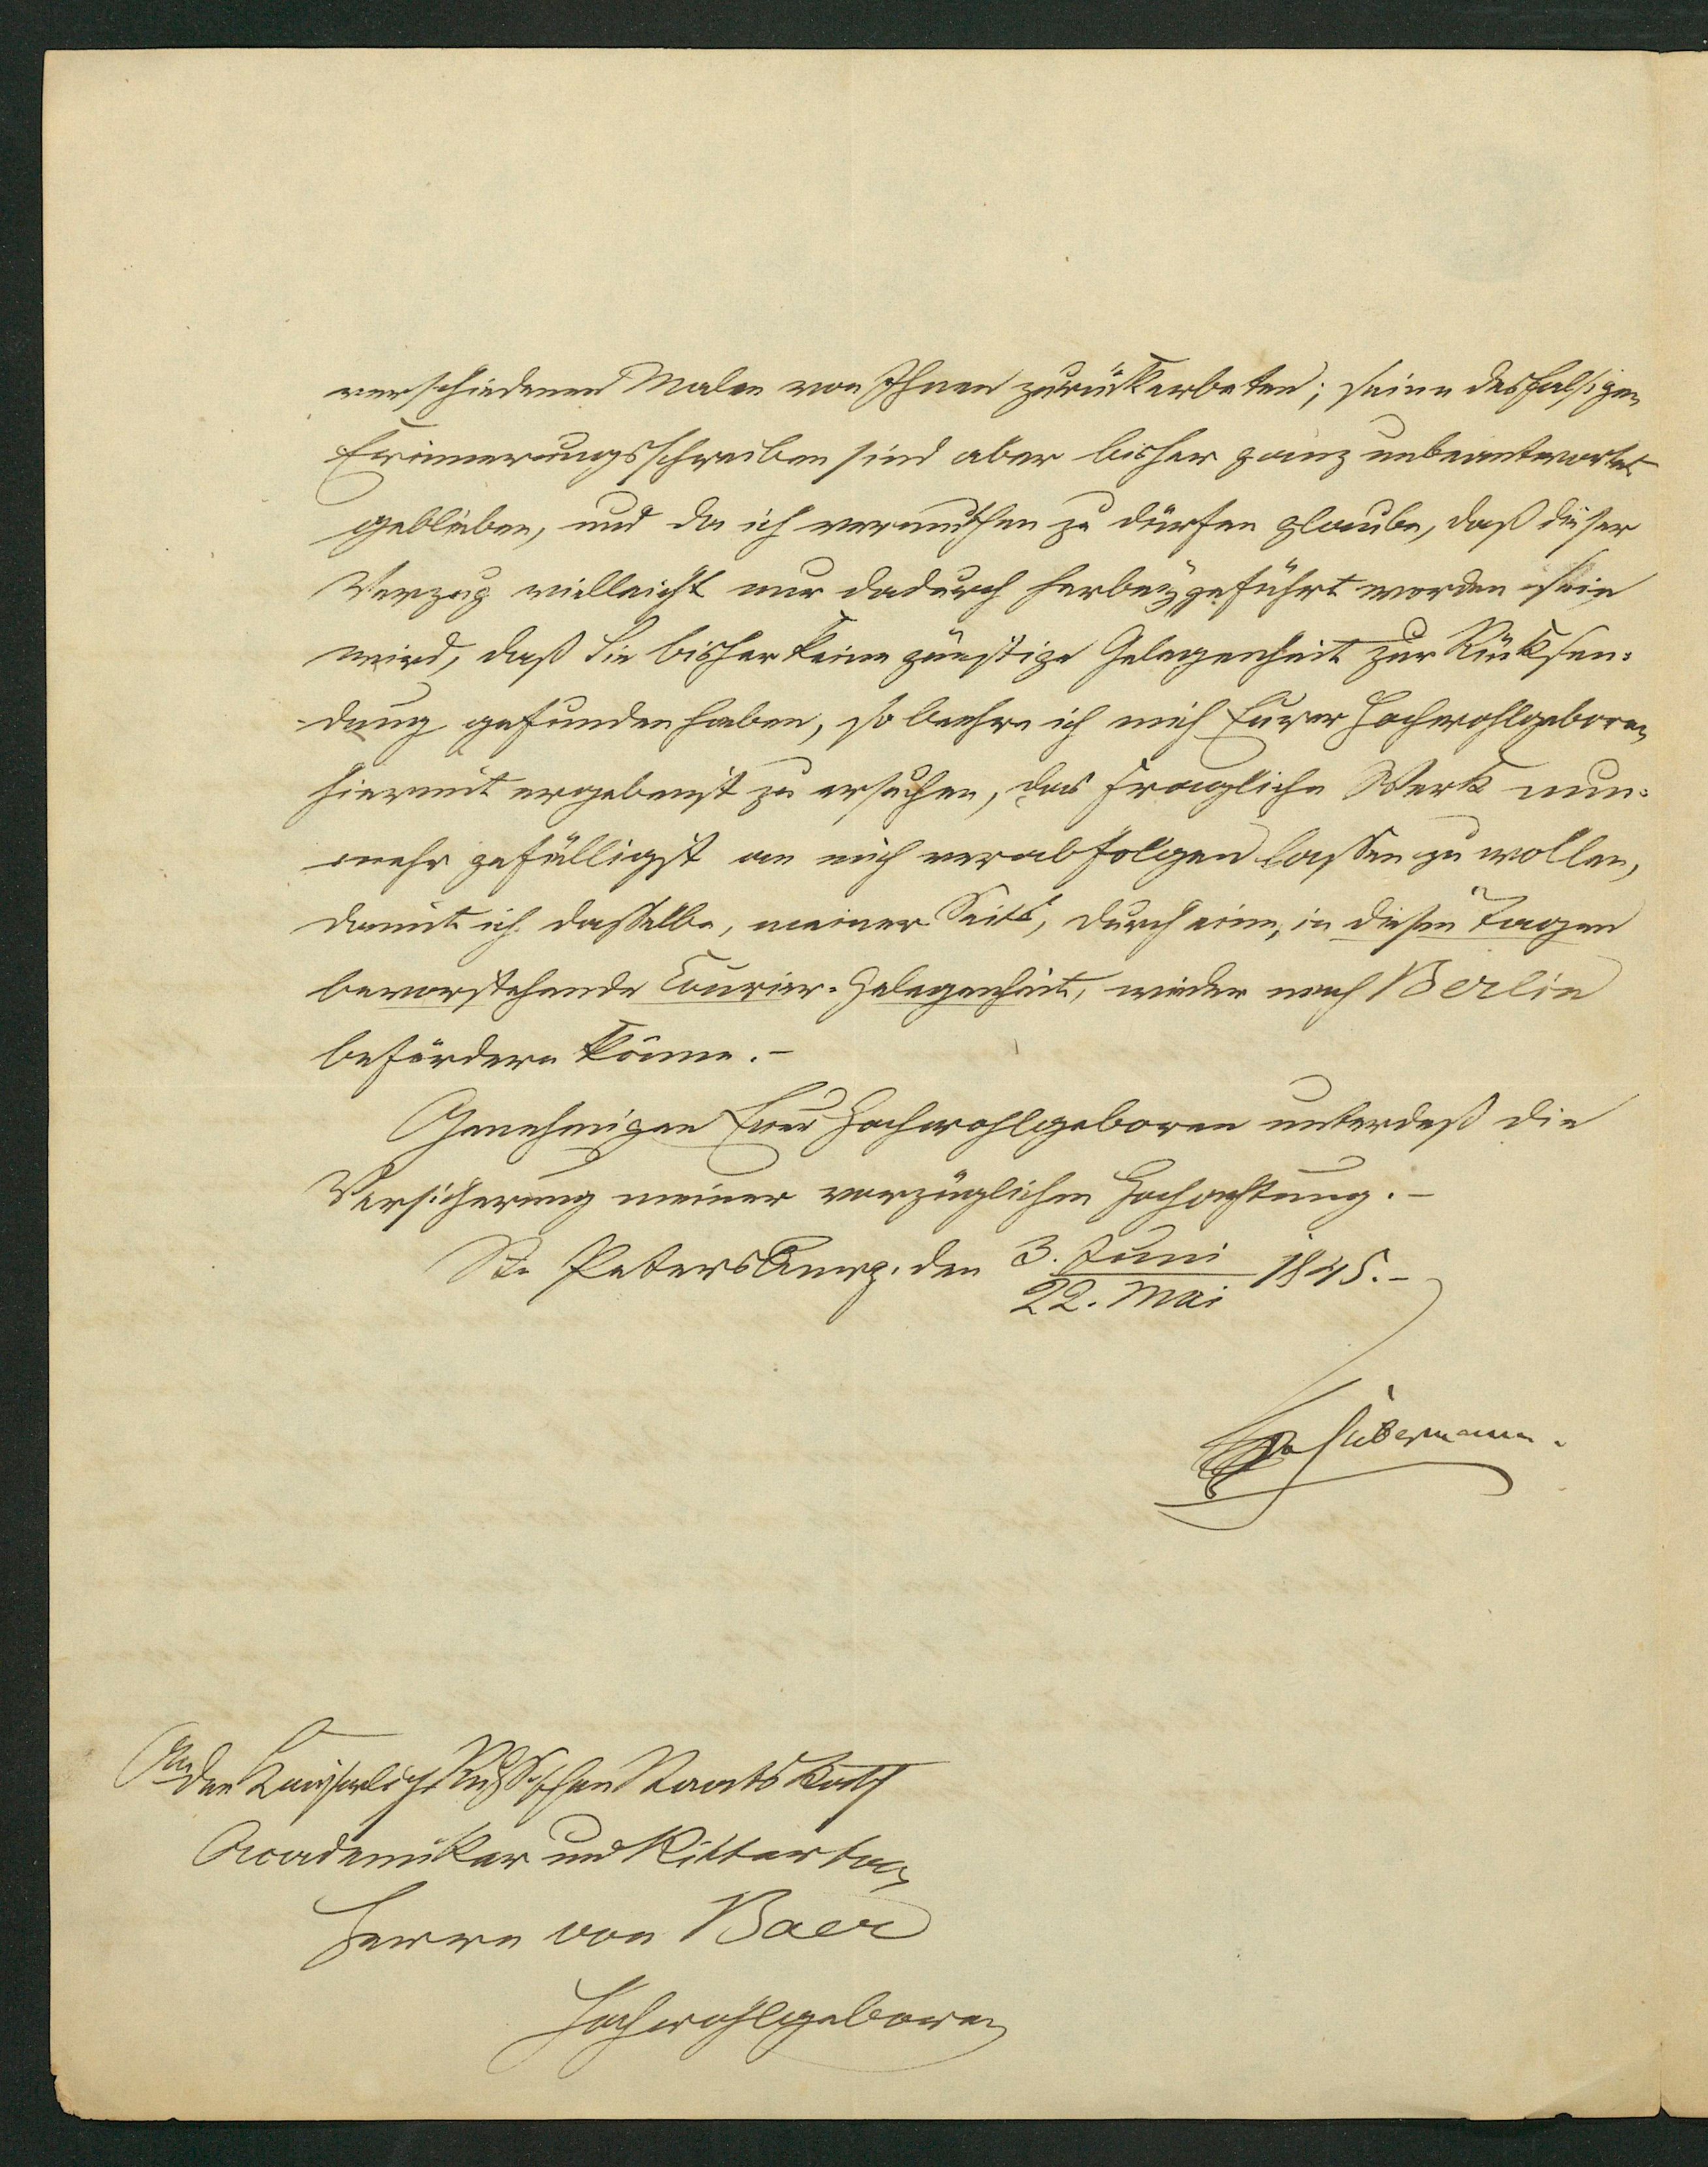 verschiedenen Malen von Ihnen zurückerbeten; seine desfalsigen
Erinnerungsschreiben sind aber bisher ganz unbeantwortet
geblieben, und da ich vermuthen zu dürfen glaube, daß dieser
Verzug vielleicht nur dadurch herbeygeführt worden sein
wird, daß Sie bisher keine günstige Gelegenheit zur Rücksen-
dung gefunden haben, so beehre ich mich Eurer Hochwohlgeboren
hiermit ergebenst zu ersuchen, das fragliche Werk nun-
mehr gefälligst an mich verabfolgen lassen zu wollen,
damit ich dasselbe, meiner Seits, durch eine, in diesen Tagen
bevorstehende Courier-Gelegenheit, wieder nach Berlin
befördern könne.-
Genehmigen Euer Hochwohlgeboren unterdeß die
Versicherung meiner vorzüglichen Hochachtung.-
St. Petersburg. den 3. Juni / 22. Mai 1845.-
An
den Kaiserlich Russischen Staats Rath
Academiker und Ritter
Herrn von Baer
Hochwohlgeboren